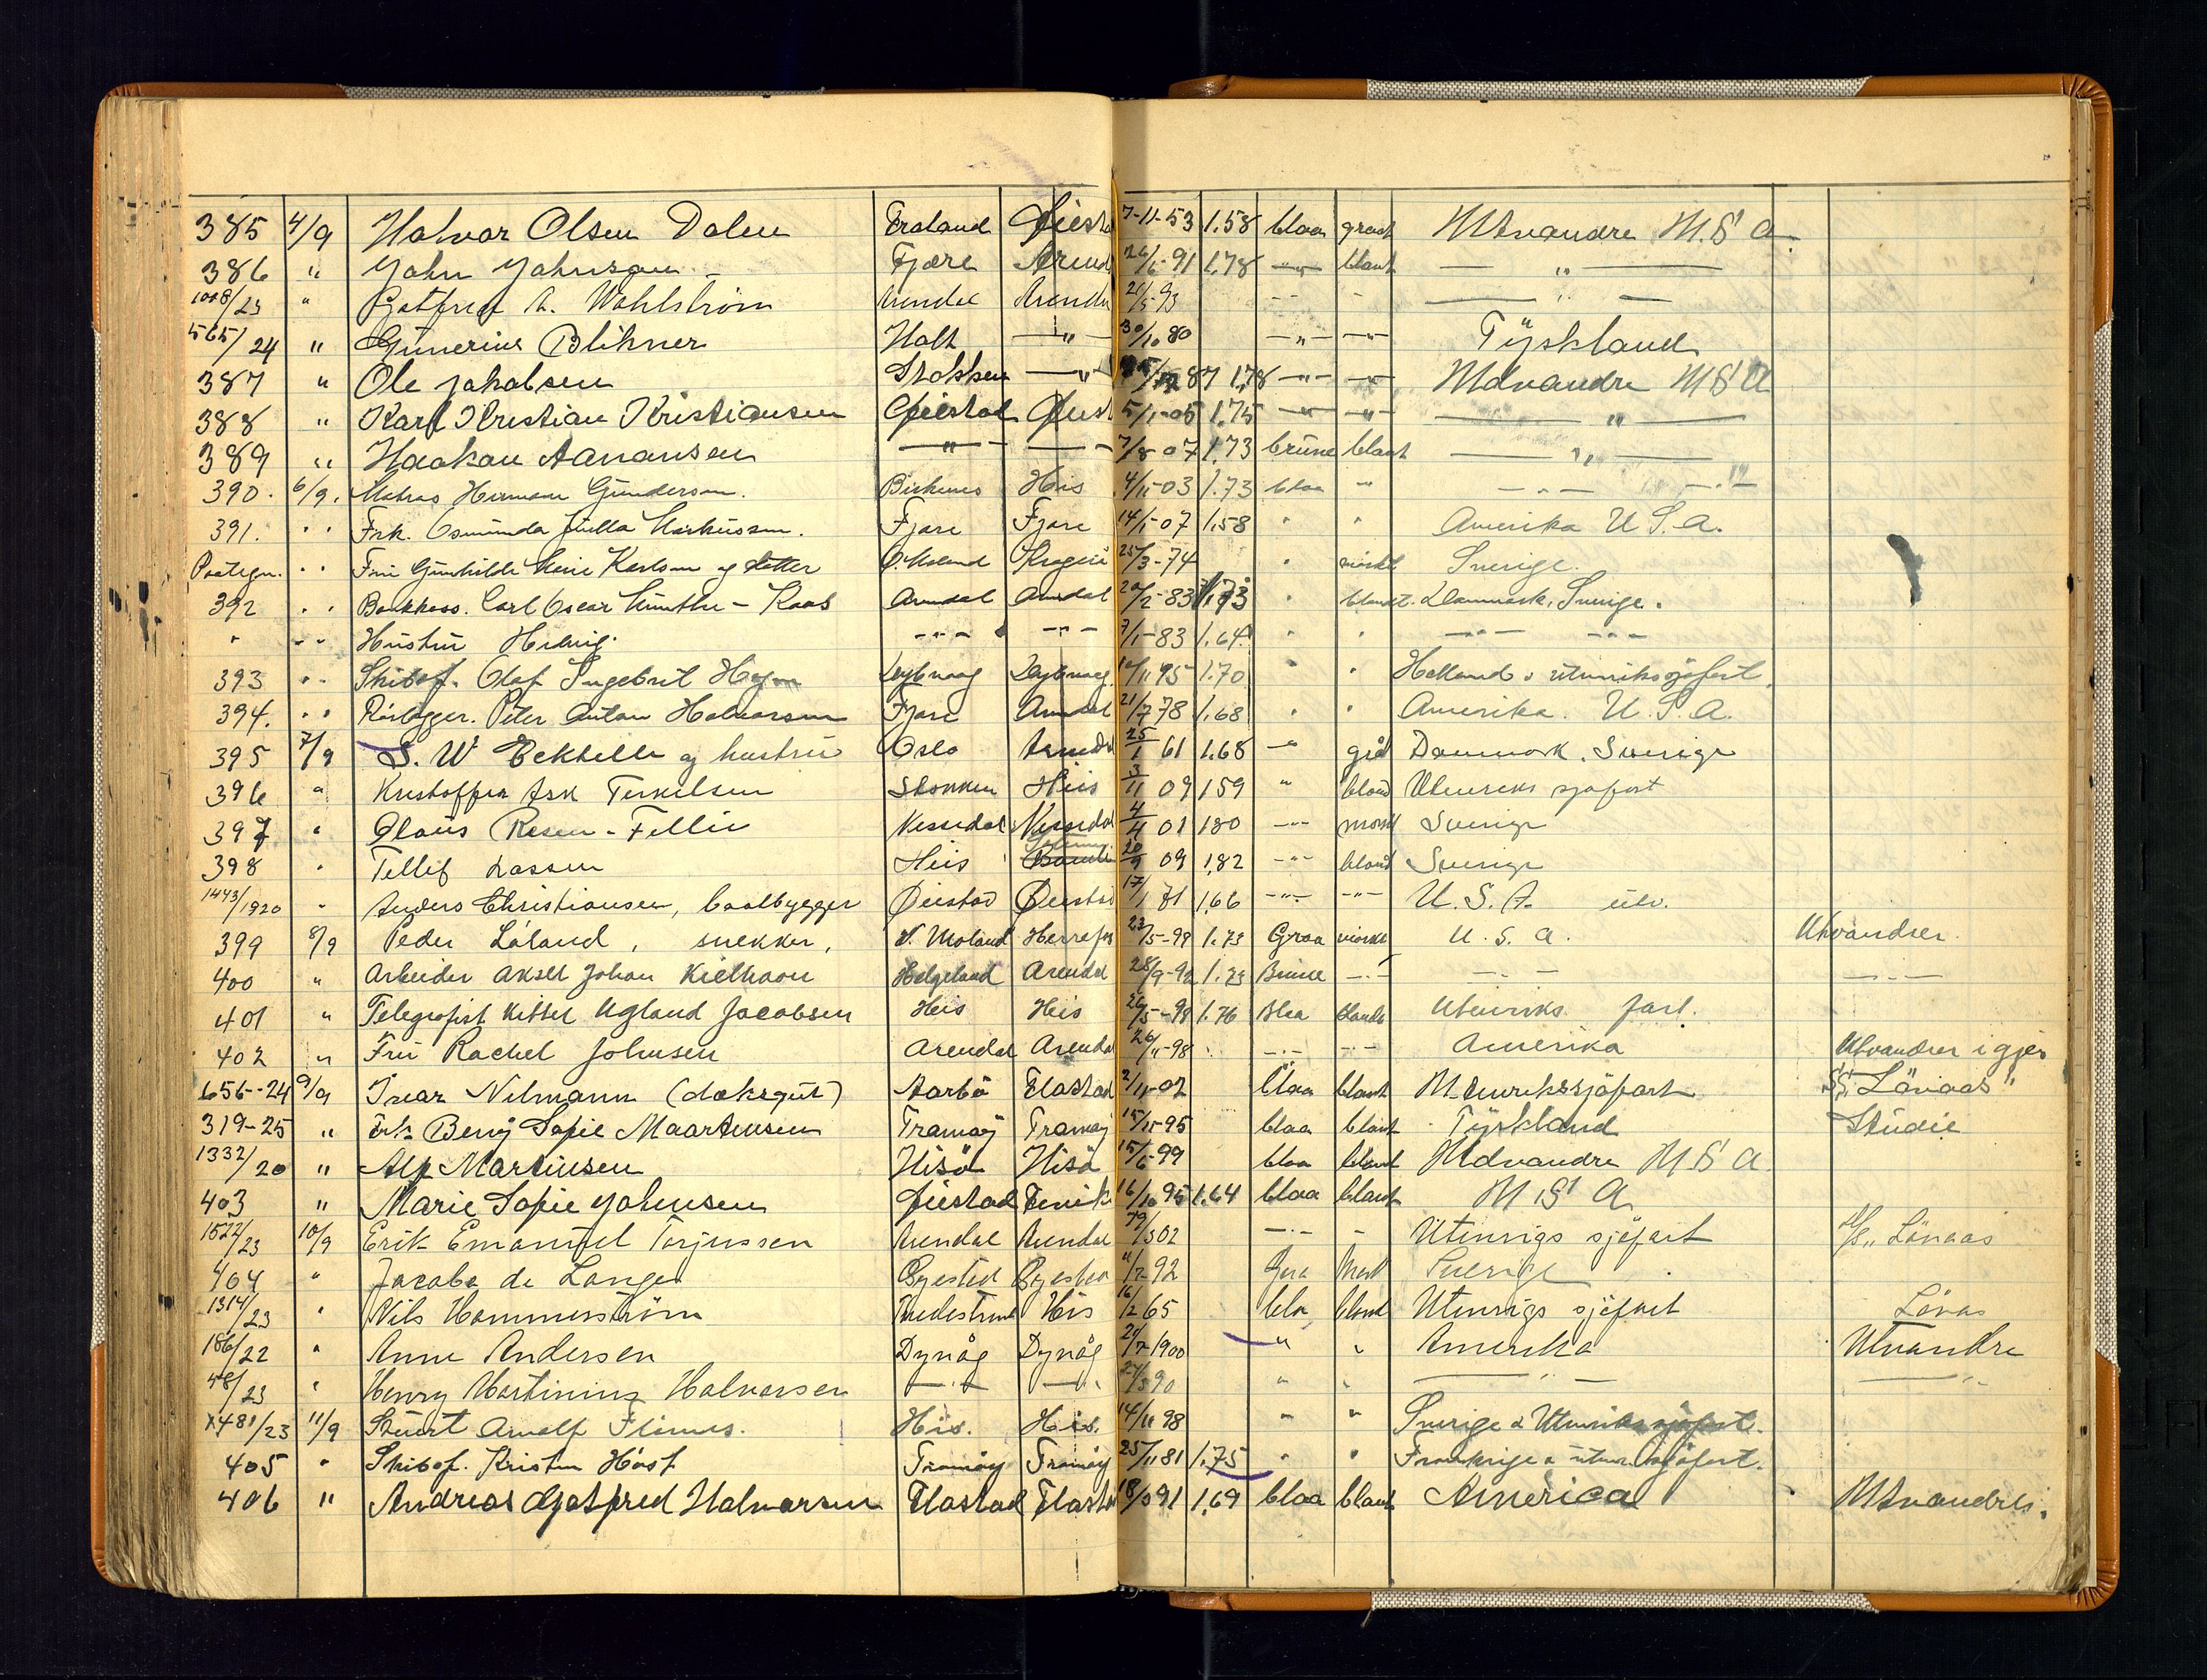 385 4/9 Halvor Olsen Dalen Froland Øiestad 7-11-53 1.58 blaa graat Utvandre U.S.A.
386 " John Johnsen Fjære Arendal 26/6-91 1,78 -"- blant — " —
1008/23 " Gotfred A. Wahlström Arendal Arendal 21/5 93 -- - — " —
565/24 " Gunerius Blihner Holt —"— 30/10 80 —"— —"— Tyskland
387 " Ole Jakobsen Stokken —"— 87 1,78 -"- -"- Udvandre U S A
388 " Karl Kristian Kristiansen Øiestad Øiest 5/1-05 1,75 -"- -"- — " —
389 " Haakon Aanansen —"— —"— 7/8-07 1,73 brune blant — " —
390. 6/9. Herman Gundersen. Birkenes His 4/11-03 1.73 blaa " -"- -"-
391. " Frk. Osmunda Julla Markussen. Fjære Fjære 14/1-07 1,58 " " Amerika U.S.A.
Paategn. " Fru Gunhilde Marie Karlsen og datter Ø. Moland Kragerø 25/3-74 " mörkt Sverige.
392 " Bankkass. Carl Oscar Munthe-Kaas Arendal Arendal 20/2-83 1,73 " blondt. Danmark, Sverige.
" -"- Hustru Hedvig -"- -"- 7/1-83 1.64 " " -"- -"-
393 " Skibsf. Olaf Ingebrit Dybvaag Dybvaag 10/11 95 1.70 " " Holland & utenriksjøfart.
394. " Rørlegger. Peter Anton Halvorsen Fjære Arendal 21/7 78 1,68 " " Amerika. U.S.A.
395 7/9 S. W Eckhell og hustru Oslo Arendal 25/1 61 1,68 -" grå Danmark. Sverige
396 " Kristoffer Ask Terkelsen Stokken Hiis 3/11 09 159 " blond Utenriks sjøfart
397 " Olaus Rosen-Fellie Nissedal Nissedal 4/4 01 180 -"- mørkt Sverige
398 " Tellef Lassen Hiis 20/9 09 1,82 -"- blond Sverige
1443/1920 " Anders Christiansen, baatbygger Øiestad Øiestad 17/1 81 1,66 -"- -"- U.S.A. utv.
399 8/9 Peder Låland, snekker, V. Moland Herrefos 23/5-99 1.73 Graa mörke U.S.A. Utvandrer
400 " Arbeider Aksel Johan Kielhaou Helgeland Arendal 28/9-92 1.73 Brune -"- -"- -"-
401 " Telegrafist Kittel Ugland Jacobsen Heis Heis 26/5-98 1.76 Blaa blondt Utenriks fart.
402 " Fru Rachel Johnsen Arendal Arendal 26/11-98 -"- -"- Amerika Utvandrer igjen
656-24 9/9 Ivar Nilmann (doksgut) Aarbö Flostad 2/11-02 blaa blant Utenrikssjöfart S/S "Lönaas"
319-25 " Frk Beny Sofie Maartensen Tromöy Tromöy 15/11-95 blaa blant Tyskland Studie
1332/20 " Alf Martinsen Hisö Hisö 15/6-99 blaa blant Udvandre U S A.
403 " Marie Sofie Johnsen Øiestad Fevik 16/10 95 1.64 blaa blant U S A
1522/23 10/9 Erik Emanuel Torjussen Arendal Arendal 302 -"- - Utenrigs sjöfart D/S "Lönaas
404 " Jacobs de Lange Øyestad Øyestad 92 Graa Mørk Sverige
1314/23 " Nils Hammerström Tvedestrand His 16/2 65 bla blond Utenrigs sjöfart Lönas
186/22 " Anne Andersen Dypvåg Dypvåg 1900 " " Amerika Utvandre
48/23 " Henry Martinius Halvorsen —"— —"— 24/3 90 " " — " — — " —
1481/23 11/9 Stuert Arnolf His. His. 14/11 98 " " Sverige & Utenrikssjøfart.
405 " Skibsf. Kristen Höst Tromöy Tromöy 25/11 81 1.75 " " Frankrige & utenr. sjøfart.
406 " Andreas Gotfred Halvorsen Flostad Flostad 18/3 91 1,69 blaa blant America Utvandres.